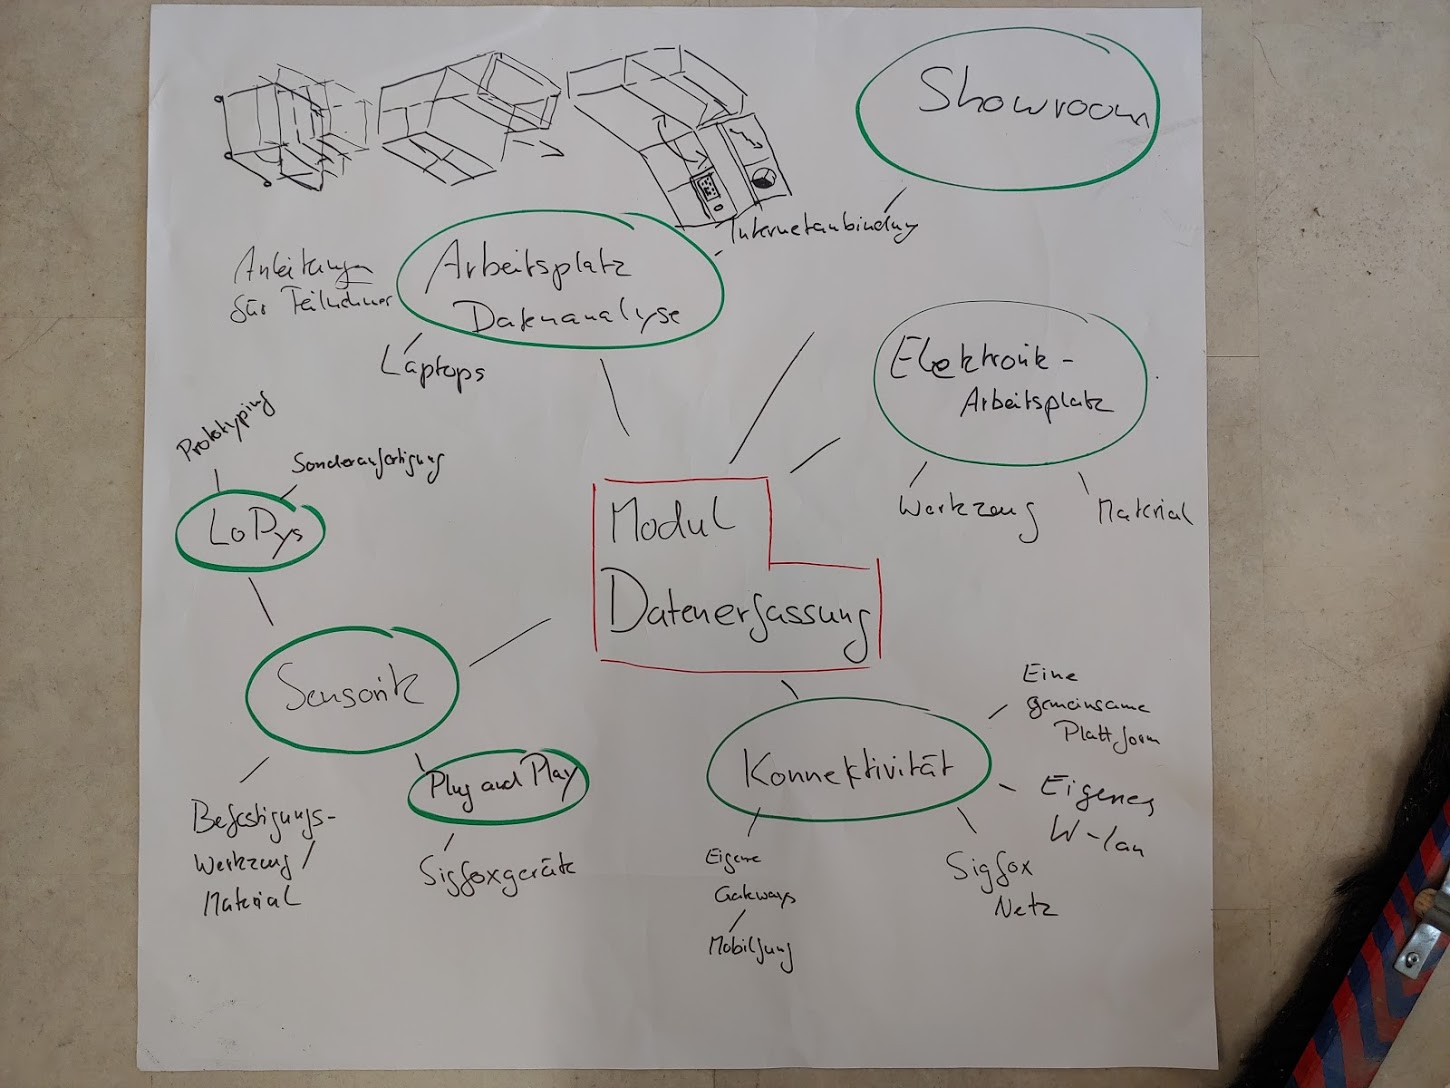 Showroom
Internetanbindung
Arbeitsplatz
Datenanalyse
Anleitungen
für Teilnehmer
Laptops
Elektronik-
Arbeitsplatz
Werkzeug
Material
Prototyping
Sonderanfertigung
LoPys
Modul
Datenerfassung
Sensorik
Plug and Play
Sigfoxgeräte
Befestigungs-
Werkzeug /
Material
Konnektivität
Eine
gemeinsame
Plattform
Eigenes
W-lan
Sigfox
Netz
Eigene
Gateways
Mobilfung